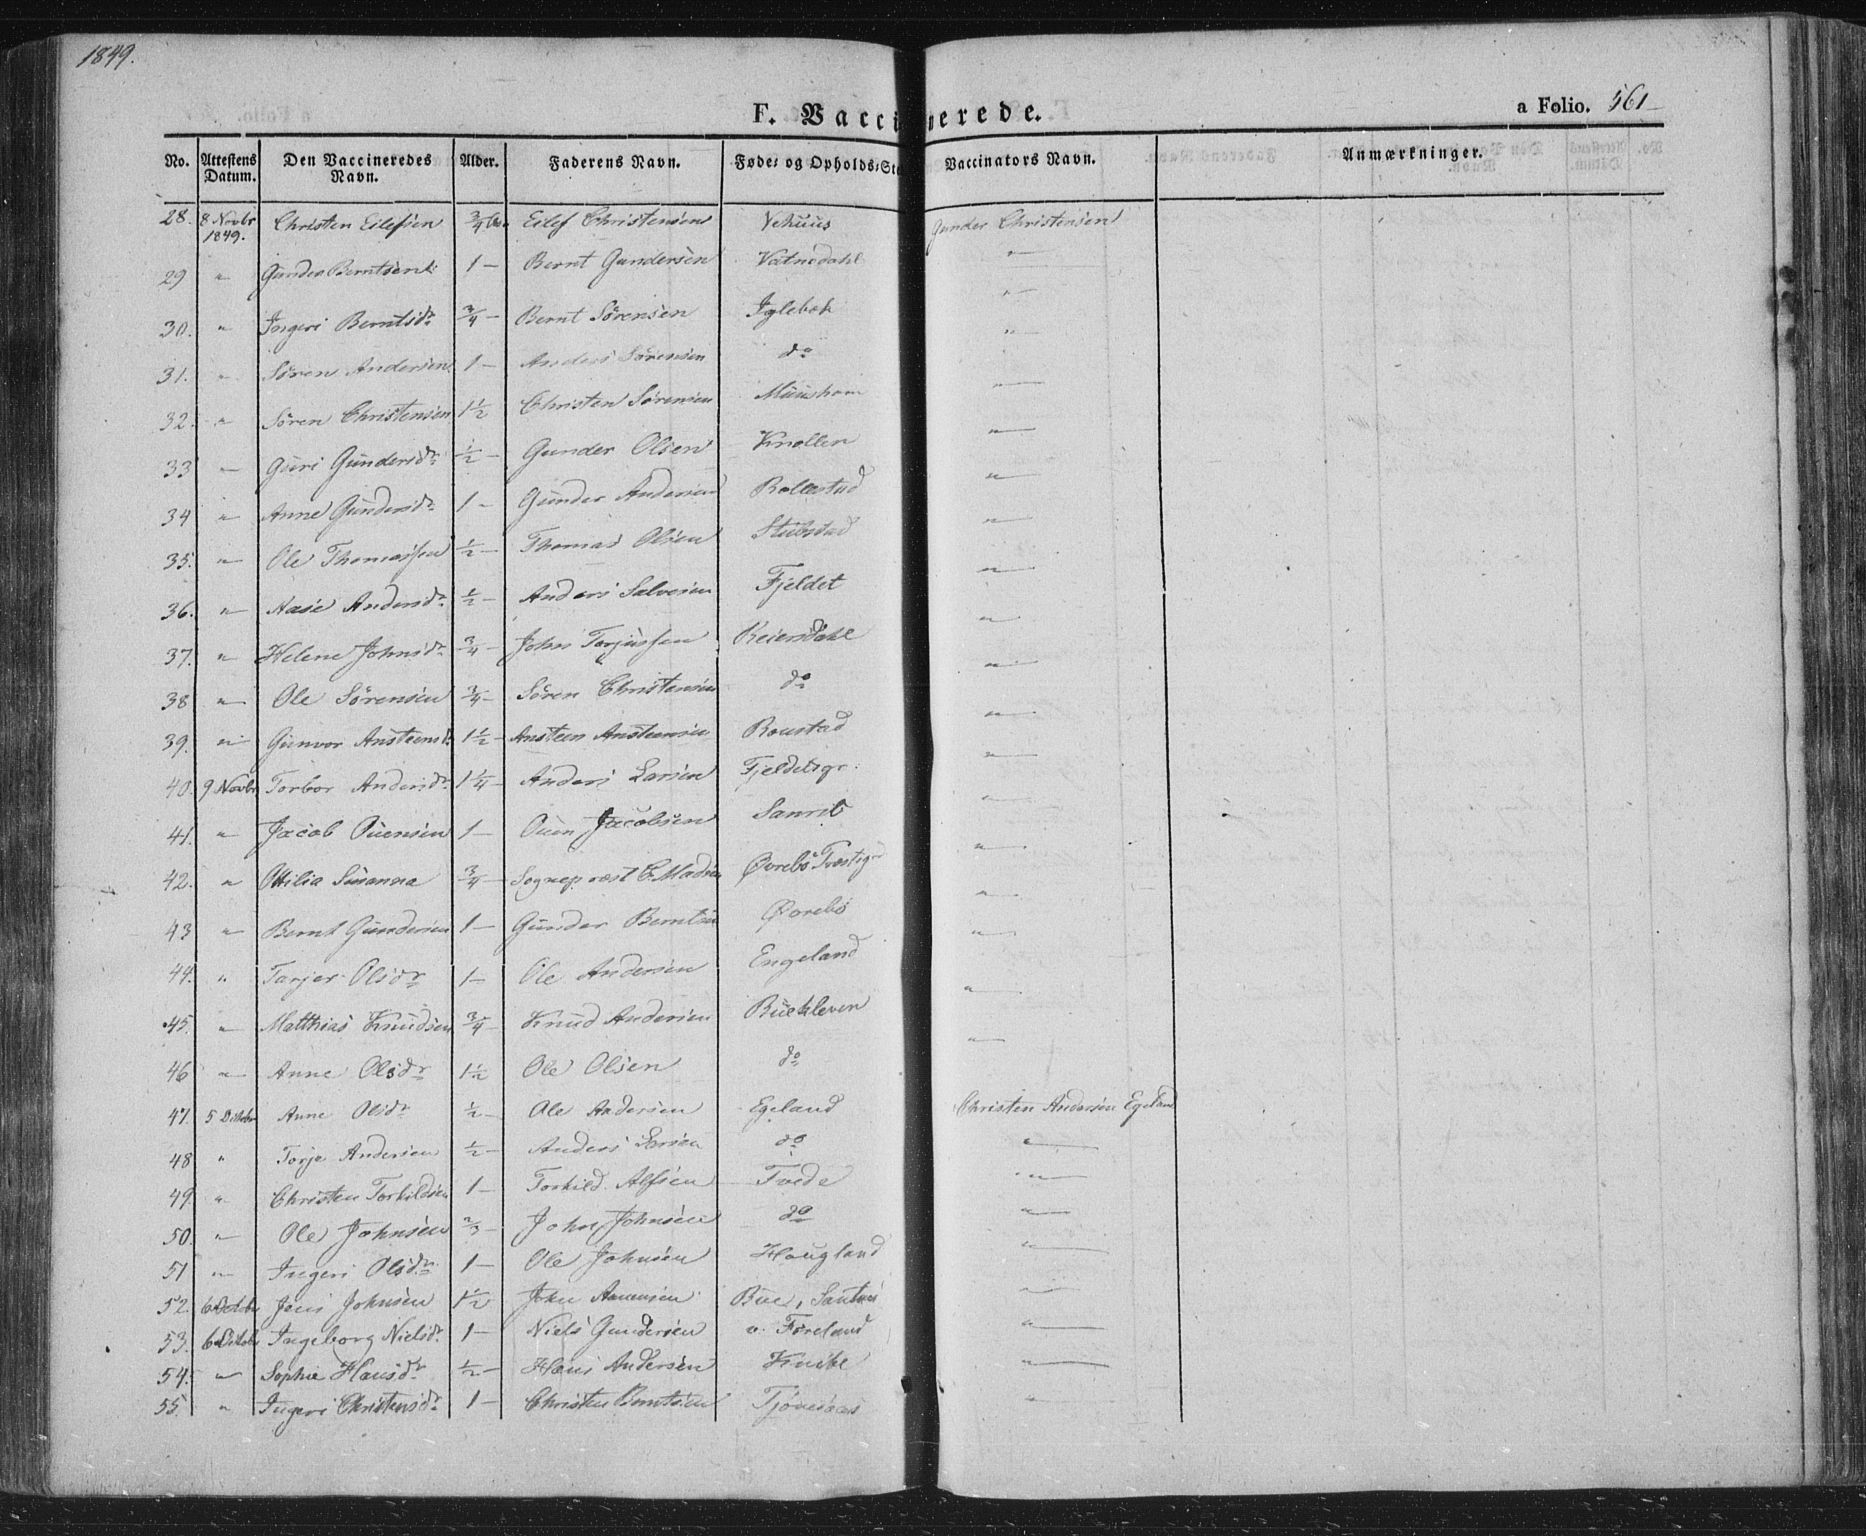 1849.
F. Vaccinerede.
a Folio. 561
No. Attestens Datum. Den Vaccineredes Navn. Alder. Faderens Navn. Føde- og Opholds-Ste Vaccinators Navn. Anmærkninger.
28. 8 Novbr 1849. Christen Eilefsen 3/4 Eilef Christensen Vehuus Gunder Christensen
29 " Gunder Berntsen 1 — Bernt Gundersen Vatnedahl "
30. " Ingeri Berntsdr 3/4 — Bernt Sörensen Iglebæk "
31. " Sören Andersen 1 — Anders Sörensen do "
32. " Sören Christensen 1 1/2 Christen Sörensen "
33 " Guri Gundersdr 1/2 — Gunder Olsen Knollen "
34 " Anne Gundersdr 1 — Gunder Andersen Bollestad "
35. " Ole Thomassen 1/2 — Thomas Olsen Stubstad "
36. " Aase Andersdr 1/2 — Anders Salvesen Fjeldet "
37. " Helene Johnsdr 3/4 — John Torjussen Reiersdahl "
38 " Ole Sörensen 3/4 — Sören Christensen do "
39. " Gunvor Ansteensdr 1 1/2 — Ansteen Ansteensen Roustad "
40. 9 Novbr Torbor Andersdr 1 1/4 — Anders Larsen Fjeldetsgr. "
41. " Jacob Ouensen 1 — Ouen Jacobsen "
42. " Ottilia Susanna 3/4 — Sognepræst C. Madsen Øvrebö "
43 " Bernt Gundersen 1 — Gunder Berntsen Øvrebö "
44. " Olsdr 1 — Ole Andersen Engeland "
45. " Matthias Knudsen 3/4 — Knud Andersen "
46 " Anne Olsdr 1 1/2 Ole Olsen do "
47. 5 Anne Olsdr 1/2 — Ole Andersen Egeland Christen Andersen Egeland
48 " Torje Andersen 1/2 — Anders Larsen do "
49. " Christen Torkildsen 1 — Torkild Alfsen Tvede "
50. " Ole Johnsen 2/3 — John Johnsen do "
51 " Ingeri Olsdr 1 — Ole Johnsen Hougland "
52. 6 Jens Johnsen 1 1/2 John Aanensen Bue, "
53. 6 Ingeborg Nielsdr 1 — Niels Gundersen v. Føreland "
54. " Sophie Hansdr 1/2 — Hans Andersen "
55. " Ingeri Christensdr 1 — Christen Berntsen "